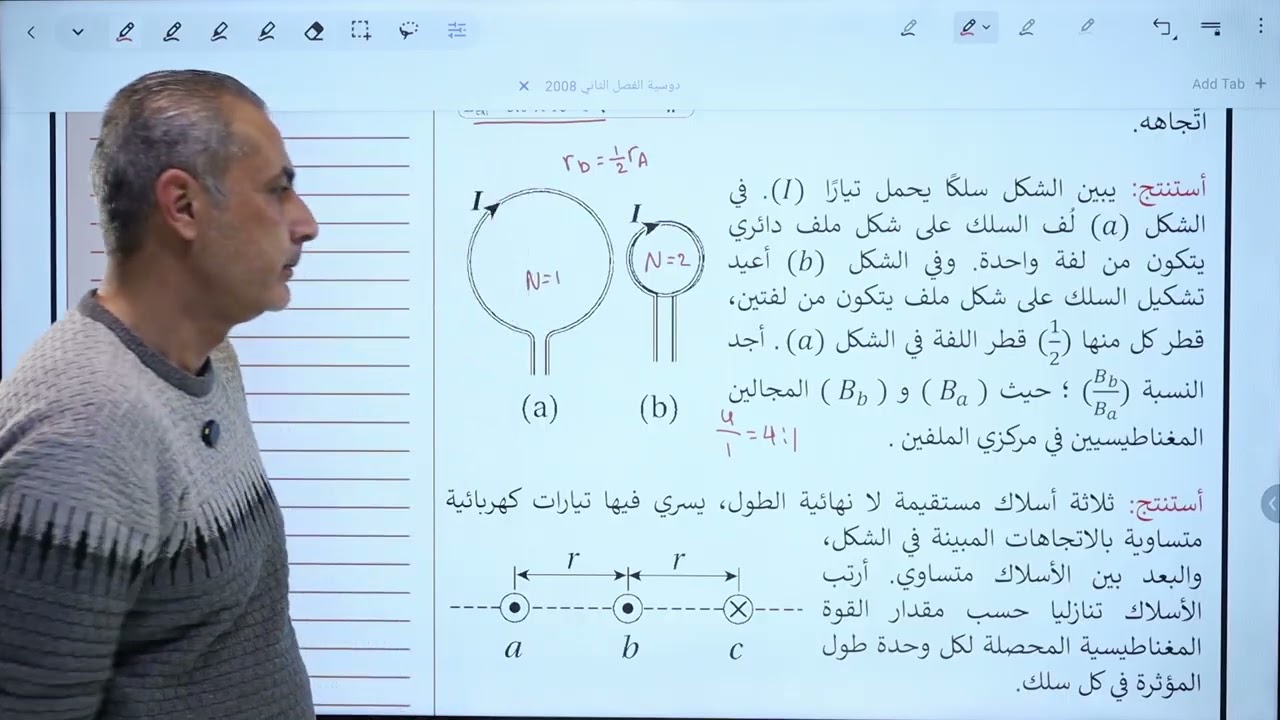 دوسية الفصل الثاني 2008
Add Tab
اتّجاهه.
r_b = 1/2 r_A
أستنتج: يبين الشكل سلكًا يحمل تيارًا (I). في
الشكل (a) لُف السلك على شكل ملف دائري
يتكون من لفة واحدة. وفي الشكل (b) أعيد
تشكيل السلك على شكل ملف يتكون من لفتين،
قطر كل منها (1/2) قطر اللفة في الشكل (a). أجد
النسبة (B_b/B_a) ؛ حيث (B_a) و (B_b) المجالين
المغناطيسيين في مركزي الملفين.
4/1 = 4:1
I
I
N=1
N=2
(a)
(b)
أستنتج: ثلاثة أسلاك مستقيمة لا نهائية الطول، يسري فيها تيارات كهربائية
متساوية بالاتجاهات المبينة في الشكل،
والبعد بين الأسلاك متساوي. أرتب
الأسلاك تنازليا حسب مقدار القوة
المغناطيسية المحصلة لكل وحدة طول
المؤثرة في كل سلك.
r r
a b c